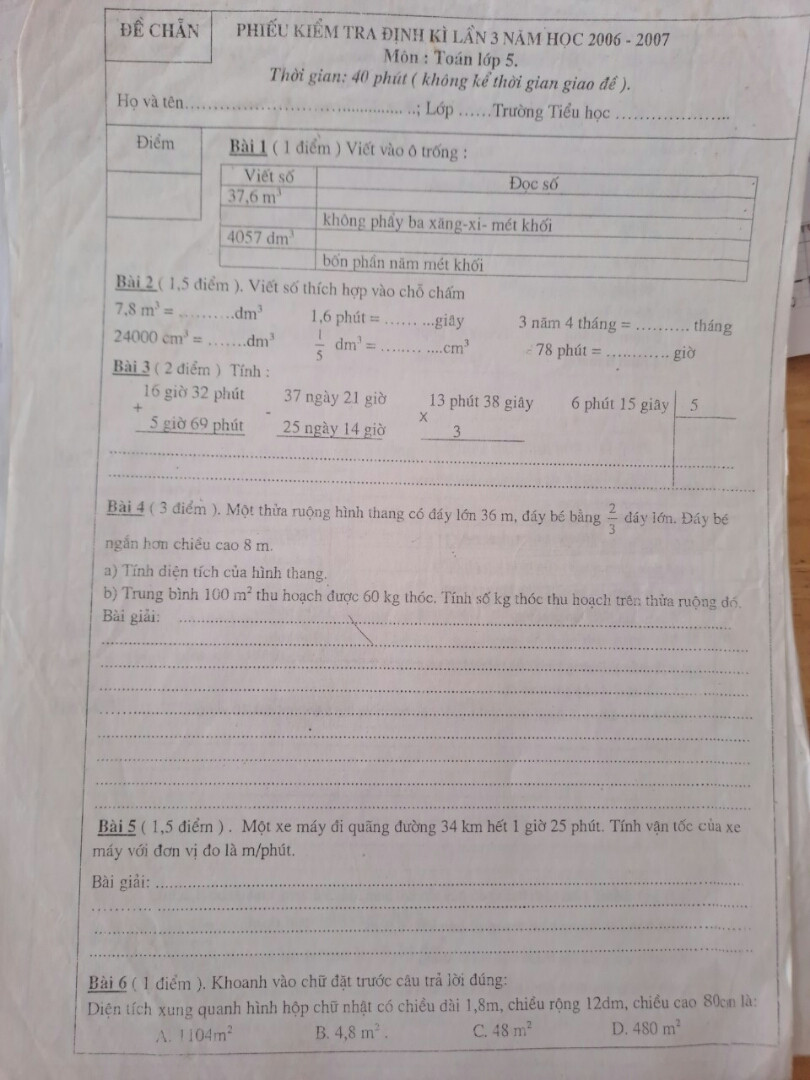 ĐỀ CHẴN
PHIẾU KIỂM TRA ĐỊNH KÌ LẦN 3 NĂM HỌC 2006 - 2007
Môn : Toán lớp 5.
Thời gian: 40 phút ( không kể thời gian giao đề ).
Họ và tên.................................................; Lớp ......Trường Tiểu học ...................
Điểm
Bài 1 ( 1 điểm ) Viết vào ô trống :
Viết số Đọc số
37,6 m³
không phẩy ba xăng-xi- mét khối
4057 dm³
bốn phần năm mét khối
Bài 2 ( 1,5 điểm ). Viết số thích hợp vào chỗ chấm
7,8 m³ = ..........dm³ 1,6 phút = .........giây 3 năm 4 tháng = .......... tháng
24000 cm³ = .......dm³ 1/5 dm³ = ............cm³ 78 phút = ........... giờ
Bài 3 ( 2 điểm ) Tính :
16 giờ 32 phút 37 ngày 21 giờ 13 phút 38 giây 6 phút 15 giây 5
+ - x
5 giờ 69 phút 25 ngày 14 giờ 3
Bài 4 ( 3 điểm ). Một thửa ruộng hình thang có đáy lớn 36 m, đáy bé bằng 2/3 đáy lớn. Đáy bé
ngắn hơn chiều cao 8 m.
a) Tính diện tích của hình thang.
b) Trung bình 100 m² thu hoạch được 60 kg thóc. Tính số kg thóc thu hoạch trên thửa ruộng đó.
Bài giải: ....................
Bài 5 ( 1,5 điểm ) . Một xe máy đi quãng đường 34 km hết 1 giờ 25 phút. Tính vận tốc của xe
máy với đơn vị đo là m/phút.
Bài giải: ....................
Bài 6 ( 1 điểm ). Khoanh vào chữ đặt trước câu trả lời đúng:
Diện tích xung quanh hình hộp chữ nhật có chiều dài 1,8m, chiều rộng 12dm, chiều cao 80cm là:
A. 1104m² B. 4,8 m² . C. 48 m² D. 480 m²